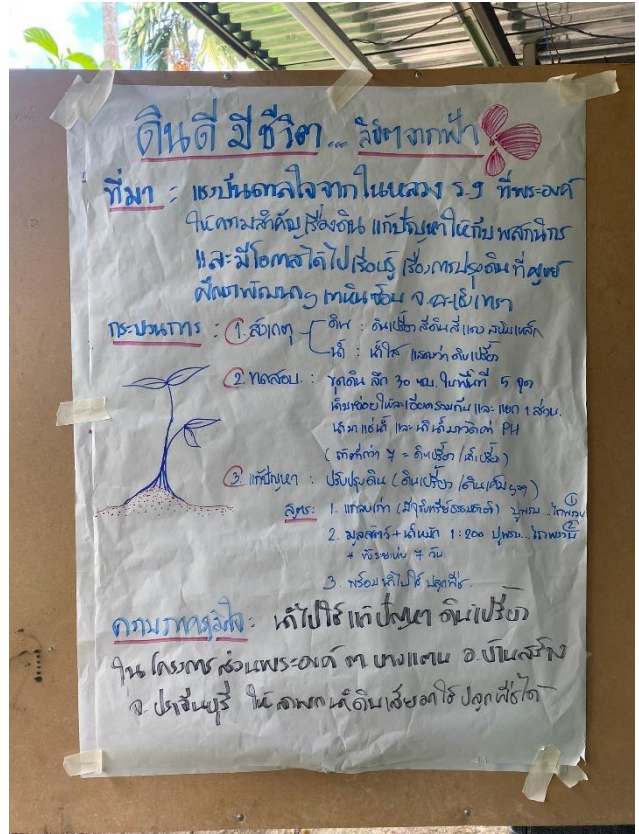 ดินดี มีชีวิต... ลิขิตจากฟ้า
ที่มา : แรงบันดาลใจจากในหลวง ร.9 ที่พระองค์
ให้ความสำคัญเรื่องดิน แก้ปัญหาให้กับพสกนิกร
และมีโอกาสได้ไปเรียนรู้ เรื่องการปรุงดิน ที่ศูนย์
ศึกษาพัฒนาฯ เขาหินซ้อน จ.ฉะเชิงเทรา
กระบวนการ : 1. สังเกตุ ดิน : ดินเปรี้ยว สีดินสีแดง สนิมเหล็ก
น้ำ : น้ำใส แสดงว่าดินเปรี้ยว
2. ทดสอบ : ขุดดิน ลึก 30 ซม. ในพื้นที่ 5 จุด
นำมาย่อยให้ละเอียดรวมกัน และ แยก 1 ส่วน
นำมาแช่น้ำ และ นำน้ำมาวัดค่า PH
(ค่าต่ำกว่า 7 = ดินเปรี้ยว / น้ำเปรี้ยว)
3. แก้ปัญหา : ปรับปรุงดิน (ดินเปรี้ยว / ดินเค็ม ฯลฯ)
สูตร: 1. แกลบเก่า (มีจุลินทรีย์ธรรมชาติ) ปูพรม... ไถพรวน 1
2. มูลสัตว์ + น้ำหมัก 1:200 ปูพรม... ไถพรวน 2
* ทิ้งระยะห่าง 7 วัน
3. พร้อมนำไปใช้ ปลูกพืช
ความภาคภูมิใจ : นำไปใช้ แก้ปัญหา ดินเปรี้ยว
ใน โครงการส่วนพระองค์ ต. บางแตน อ. บ้านสร้าง
จ. ปราจีนบุรี ให้สามารถนำดินเสียมาใช้ปลูกพืชได้